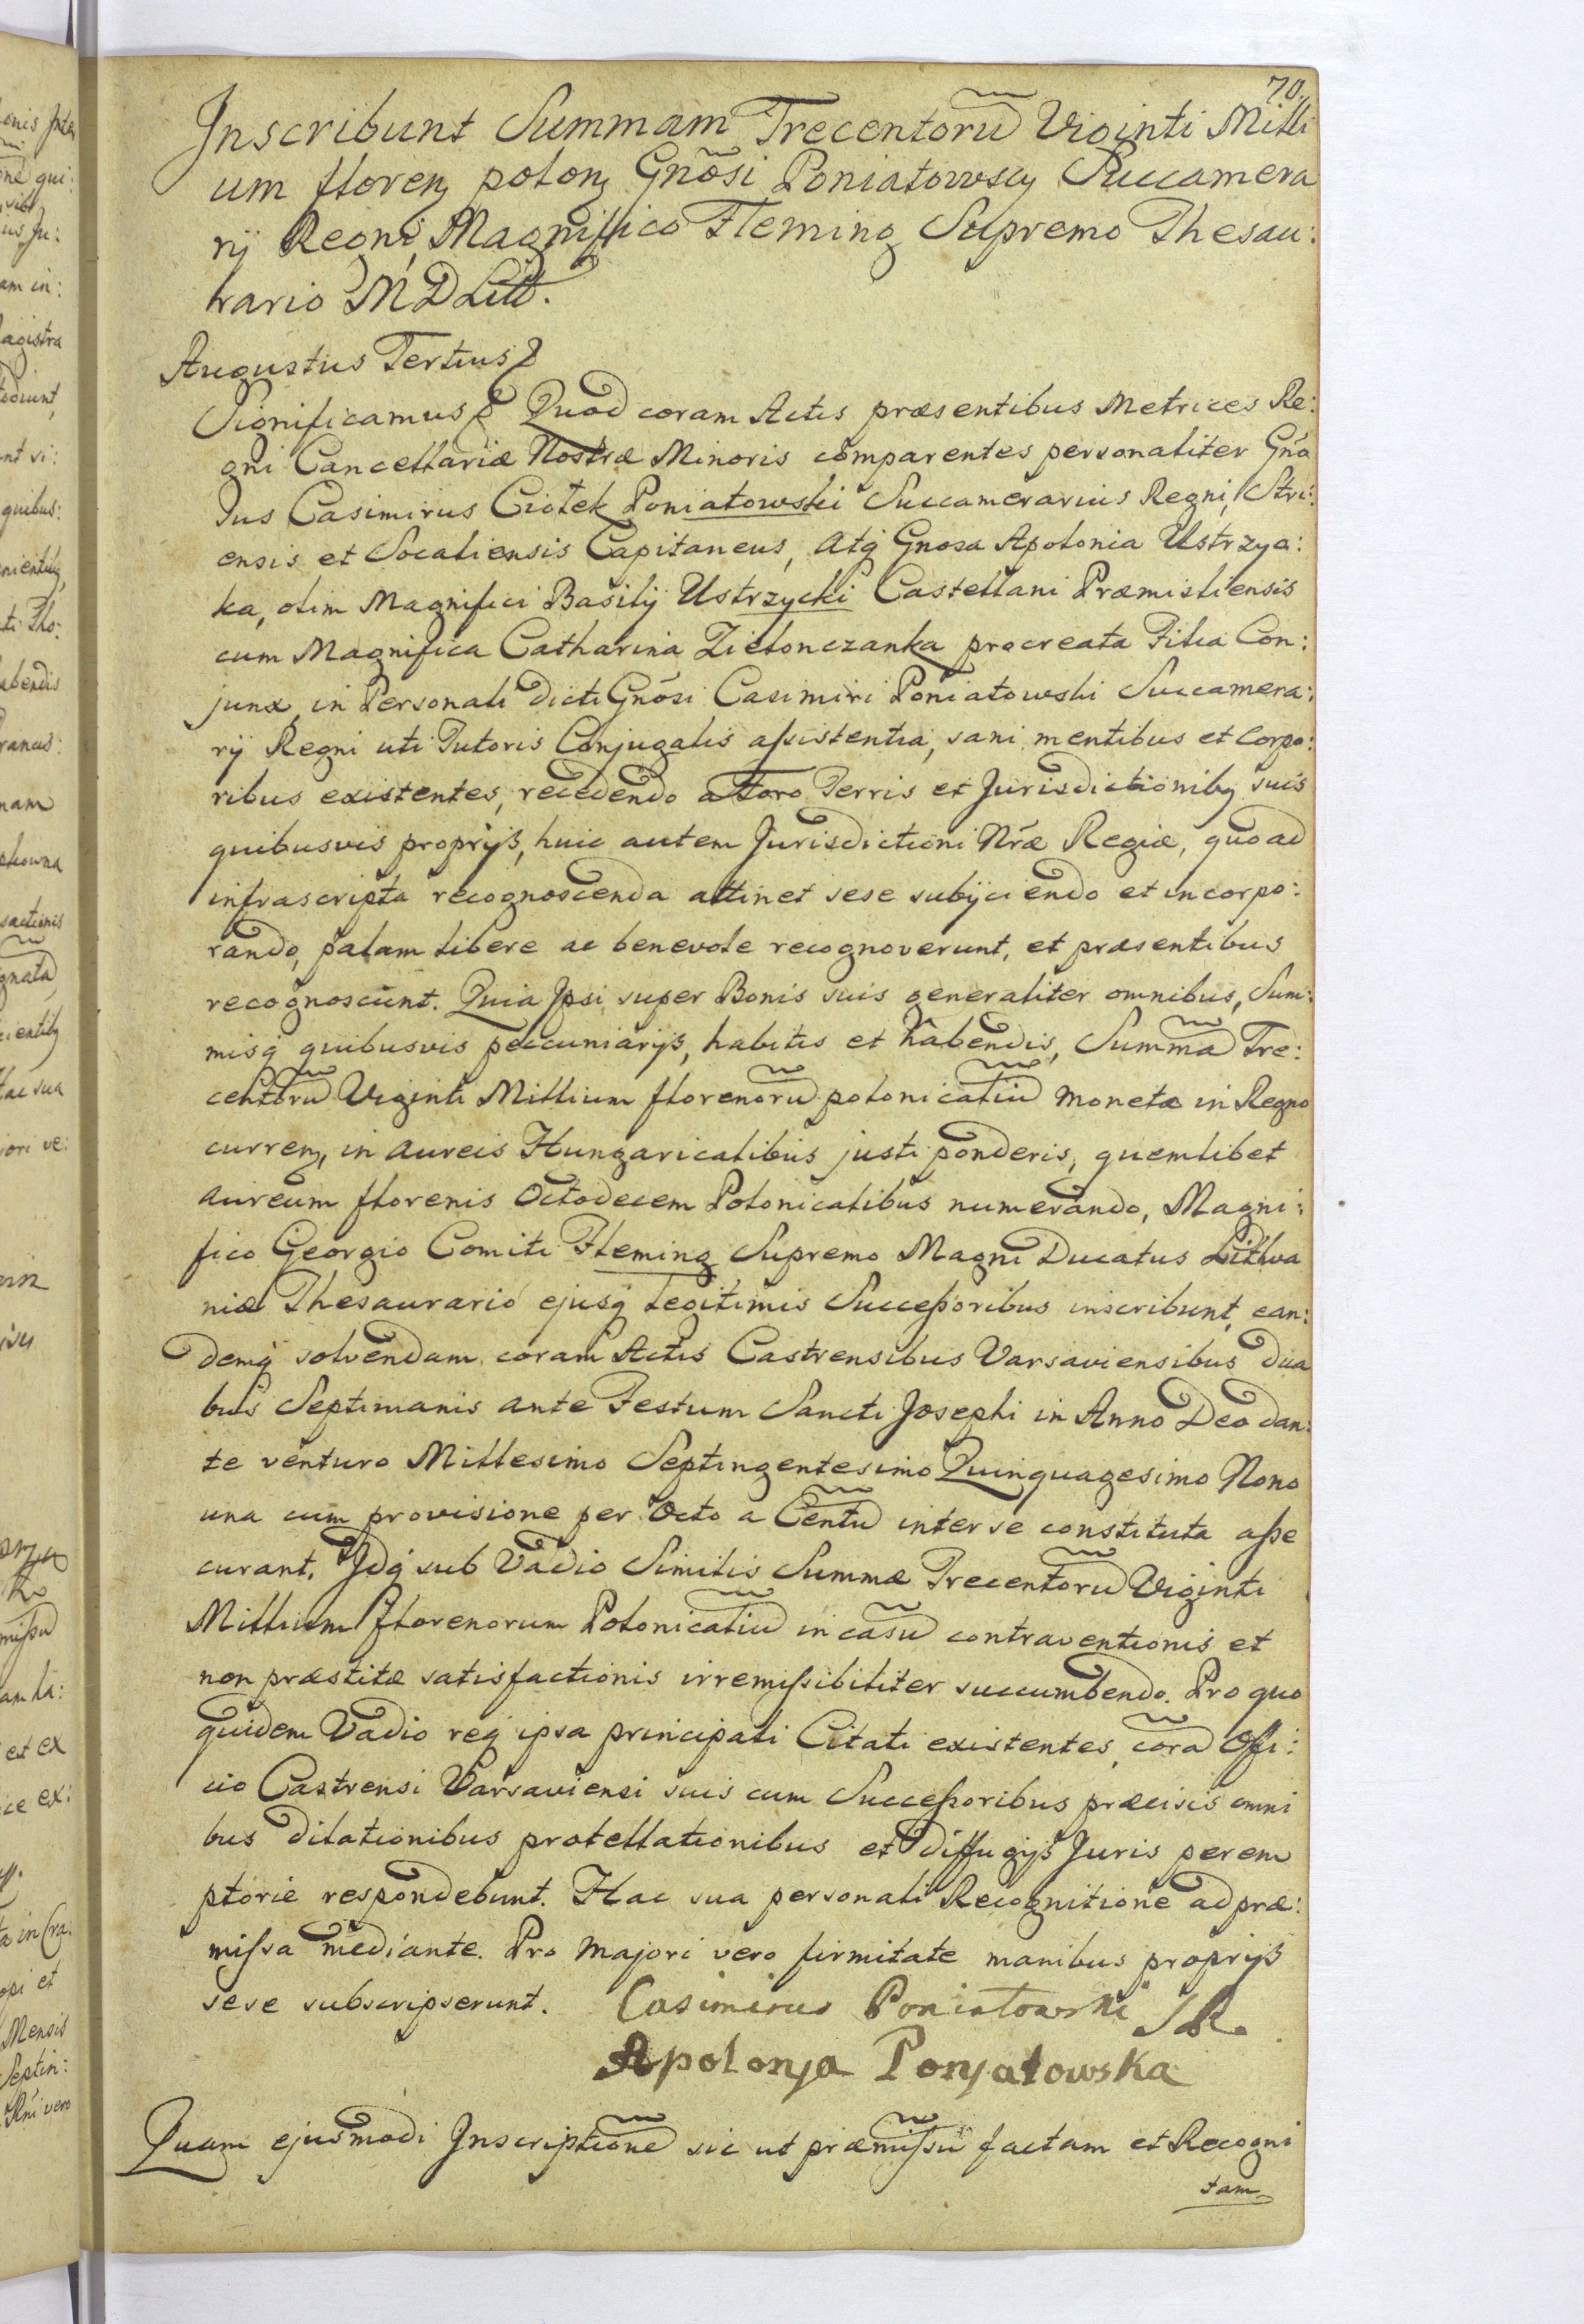 70.
Inscribunt Summam Trecentorũ Viginti Milli
um floren polon Gnõsi Poniatowscy Succamera
rij Regni, Magnifico Fleming Supremo Thesau:
rario M D Litt.
Augustus Tertius
Significamus Quod coram Actis præsentibus Metrices Re:
gni Cancellariæ Nostræ Minoris comparentes personaliter Gñō
sus Casimirus Ciołek Poniatowski Succamerarius Regni, Stri:
ensis et Socaliensis Capitaneus, atq Gnosa Apolonia Ustrzyc:
ka, olim Magnifici Basilij Ustrzycki Castellani Præmisliensis
cum Magnifica Catharina Zielonczanka procreata Filia Con:
junx, in Personali dicti Gnõsi Casimiri Poniatowski Succamera:
rij Regni uti Tutoris Conjugalis aſsistentia, sani mentibus et corpo:
ribus existentes, recedendo a Foro Terris et Jurisdictionibq suis
quibusvis proprijs, huic autem Jurisdictioni Nr̃æ Regiæ, quo ad
infrascripta recognoscenda attinet sese subijciendo et incorpo:
rando, palam libere ac benevole recognoverunt, et præsentibus
recognoscunt. Quia Ipsi super Bonis suis generaliter omnibus, Sum:
misq quibusvis peccuniarijs, habitis et habendis, Summã Tre:
centorũ Viginti Millium florenorũ polonicaliũ monetæ in Regno
curren, in aureis Hungaricalibus justi ponderis, quemlibet
aureum florenis Octodecem Polonicalibus numerando, Magni:
fico Georgio Comiti Fleming Supremo Magni Ducatus Lithva
niæ Thesaurario ejusq legitimis Succeſsoribus inscribunt, ean:
demq solvendam coram Actis Castrensibus Varsaviensibus dua
bus Septimanis ante Festum Sancti Josephi in Anno Deo dan:
te venturo Millesimo Septingentesimo Quinquagesimo Nono
una cum provisione per Octo a Centũ inter se constituta aſse
curant. Idq sub Vadio Similis Summæ Trecentorũ Viginti
Millium florenorum Polonicaliũ in casũ contraventionis et
non præstitæ satisfactionis irremiſsibiliter succumbendo. Pro quo
quidem Vadio req ipsa principali Citati existentes, corã Offi:
cio Castrensi Varsaviensi suis cum Succeſsoribus præcisis omni
bus dilationibus protellationibus et diffugijs Juris perem
ptorie respondebunt. Hac sua personali Recognitione ad præ:
miſsa mediante. Pro majori vero firmitate manibus proprijs
sese subscripserunt. Casimirus Poniatowski
Apolonja Ponjatowska
Quam ejusmodi Inscriptionẽ sic ut præmiſsũ factam et Recogni
tam